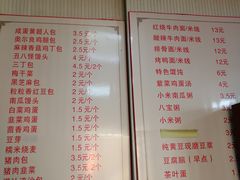 咸蛋黄超人包 3.5元/个
奥尔良鸡腿包 2.5元/个
麻辣香菇鸡丁包 2.5元/个
百八馒头 4元/个
三丁包 4.5元/2个
梅干菜 2元/个
黑芝麻包 2元/个
粒粒香红豆包 2元/个
南瓜馒头 2元/个
白菜鸡蛋 1.5元/个
韭菜鸡蛋 1.5元/个
茴香鸡蛋 1.5元/个
豆芽 1.5元/个
糯米烧麦 1.5元/个
猪肉包
猪肉韭菜
红烧牛肉面/米线 13元
酸辣牛肉面/米线
排骨面/米线
烤鸭面/米线 12元
特色馄饨 6元
紫菜鸡蛋汤 3元
小米南瓜粥 3元
八宝粥 3元
小米粥 3元
纯黄豆现磨豆浆 2元
豆腐脑（早点） 2元
茶叶蛋